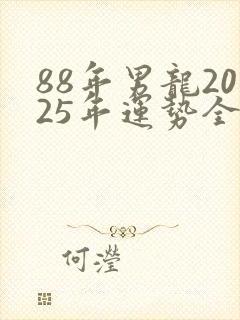 88年男龍20
25年運勢全
何瀅